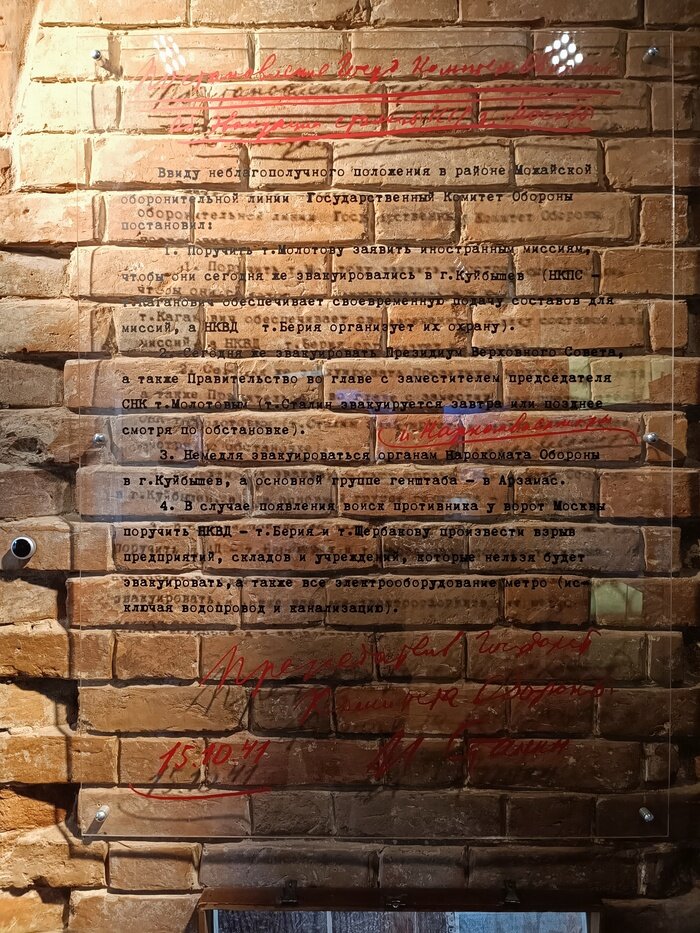 Постановление Госуд. Комитета Обороны
об эвакуации столицы СССР г. Москвы
Ввиду неблагополучного положения в районе Можайской
оборонительной линии Государственный Комитет Обороны
постановил:
1. Поручить т.Молотову заявить иностранным миссиям,
чтобы они сегодня же эвакуировались в г.Куйбышев (НКПС –
т.Каганович обеспечивает своевременную подачу составов для
миссий, а НКВД т.Берия организует их охрану).
2. Сегодня же эвакуировать Президиум Верховного Совета,
а также Правительство во главе с заместителем председателя
СНК т.Молотовым (т.Сталин эвакуируется завтра или позднее
смотря по обстановке).
и Наркомвоенмора
3. Немедля эвакуироваться органам Наркомата Обороны
в г.Куйбышев, а основной группе генштаба – в Арзамас.
4. В случае появления войск противника у ворот Москвы
поручить НКВД – т.Берия и т.Щербакову произвести взрыв
предприятий, складов и учреждений, которые нельзя будет
эвакуировать,а также все электрооборудование метро (ис-
ключая водопровод и канализацию).
Председатель Государст
Комитета Обороны
15.10.41 И Сталин